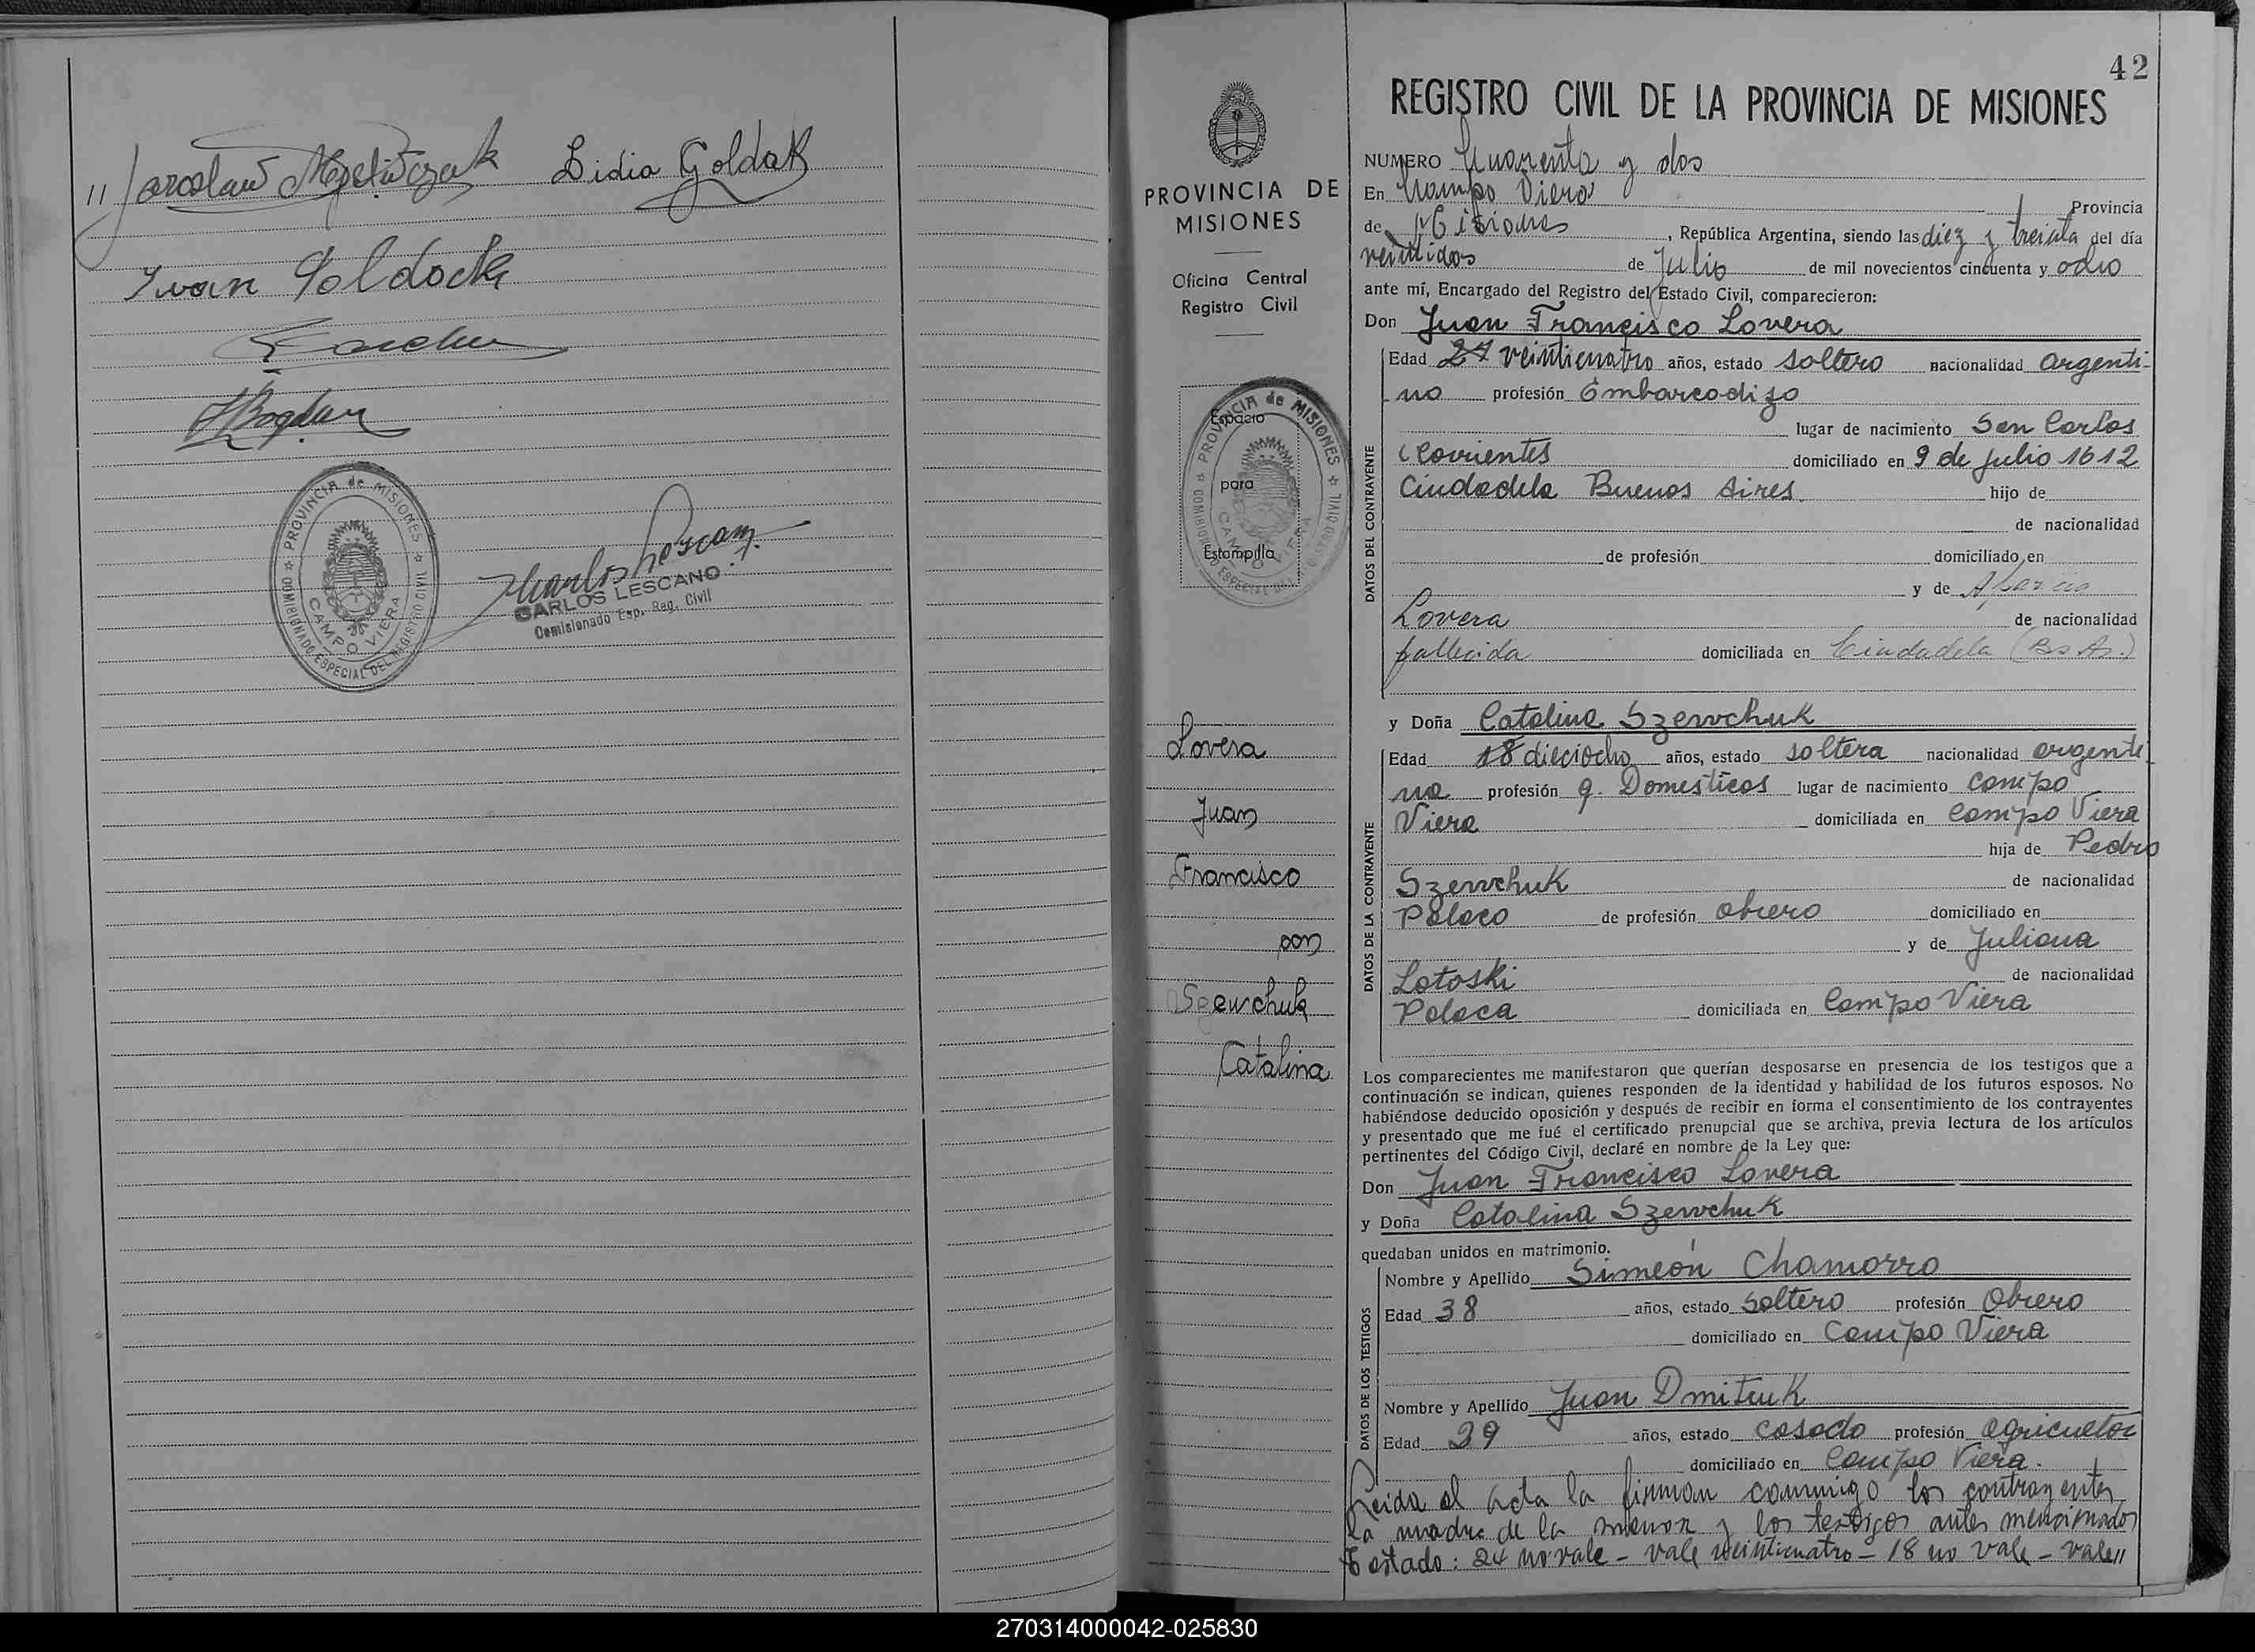 " Jaroslaw Lidia Goldak
Ivan Goldack
Bogdan
PROVINCIA de MISIONES
COMISIONADO ESPECIAL DEL REGISTRO CIVIL
CAMPO VIERA
Carlos Lescano
CARLOS LESCANO
Comisionado Esp. Reg. Civil
PROVINCIA DE
MISIONES
Oficina Central
Registro Civil
PROVINCIA de MISIONES
Espacio
para
Estampilla
Lovera
Juan
Francisco
con
Szewchuk
Catalina
42
REGISTRO CIVIL DE LA PROVINCIA DE MISIONES
NUMERO Cuarenta y dos
En Campo Viera Provincia
de Misiones, República Argentina, siendo las diez y treinta del día
veintidos de Julio de mil novecientos cincuenta y ocho
ante mí, Encargado del Registro del Estado Civil, comparecieron:
Don Juan Francisco Lovera
Edad 24 veinticuatro años, estado soltero nacionalidad argenti-
no profesión Embarcadizo
lugar de nacimiento San Carlos
Corrientes domiciliado en 9 de Julio 1612
Ciudadela Buenos Aires hijo de
de nacionalidad
de profesión domiciliado en
y de
Lovera de nacionalidad
fallecida domiciliada en Ciudadela (Bs As.)
DATOS DEL CONTRAYENTE
y Doña Catalina Szewchuk
Edad 18 dieciocho años, estado soltera nacionalidad argenti-
na profesión q. Domesticos lugar de nacimiento Campo
Viera domiciliada en Campo Viera
hija de Pedro
Szewchuk de nacionalidad
Polaco de profesión obrero domiciliado en
y de Juliana
Lotoski de nacionalidad
Polaca domiciliada en Campo Viera
DATOS DE LA CONTRAYENTE
Los comparecientes me manifestaron que querían desposarse en presencia de los testigos que a
continuación se indican, quienes responden de la identidad y habilidad de los futuros esposos. No
habiéndose deducido oposición y después de recibir en forma el consentimiento de los contrayentes
y presentado que me fué el certificado prenupcial que se archiva, previa lectura de los artículos
pertinentes del Código Civil, declaré en nombre de la Ley que:
Don Juan Francisco Lovera
y Doña Catalina Szewchuk
quedaban unidos en matrimonio.
Nombre y Apellido Simeón Chamorro
Edad 38 años, estado Soltero profesión Obrero
domiciliado en Campo Viera
Nombre y Apellido Juan Dmitruk
Edad 29 años, estado casado profesión agricultor
domiciliado en Campo Viera.
DATOS DE LOS TESTIGOS
Leida el acta la firman conmigo los contrayentes
la madre de la menor y los testigos antes mencionados
Testado: 24 no vale - vale veinticuatro - 18 no vale - vale "
270314000042-025830